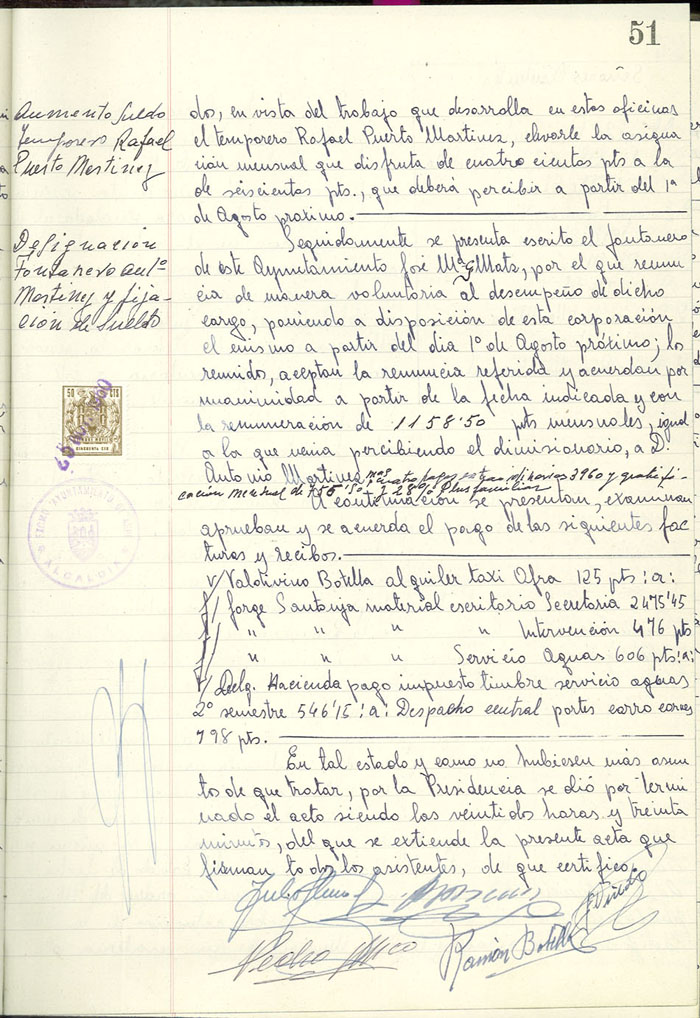 51
Aumento Sueldo
Temporero Rafael
Puerto Martinez
dos, en vista del trabajo que desarrolla en estas oficinas
el temporero Rafael Puerto Martinez, elevarle la asigna
ción mensual que disfruta de cuatro cientas pts a la
de seiscientas pts., que deberá percibir a partir del 1º
de Agosto próximo.
Designación
Fontanero Antº
Martinez y fija-
ción de Sueldo
Seguidamente se presenta escrito el fontanero
de éste Ayuntamiento José Mª Matz, por el que renun
cia de manera voluntaria al desempeño de dicho
cargo, poniendo a disposición de esta corporación
el mismo a partir del dia 1º de Agosto próximo; los
reunidos, aceptan la renuncia referida y acuerdan por
unanimidad a partir de la fecha indicada y con
la remuneración de 1158'50 pts mensuales, igual
a la que venia percibiendo el dimisionario, a D.
Antonio Martinez mas cuatro pagas extraordinarias 3960 y gratifi-
cación mensual de y 28% Plus familiar
A continuación se presentan, examinan
aprueban y se acuerda el pago de las siguientes fac
turas y recibos.
50 CTS
CINCUENTA CTS
ALCALDIA
Valdivino Botella alquiler taxi Afra 125 pts :a:
Jorge Santonja material escritorio Secretaria 2475'45
" " " " Intervención 476 pts
" " " Servicio Aguas 606 pts :a:
Delg. Hacienda pago impuesto timbre servicio aguas
2º semestre 546'15 :a: Despacho central portes carro carnes
798 pts.
En tal estado y como no hubiesen más asun
tos de que tratar, por la Presidencia se dió por termi
nado el acto siendo las veintidos horas y treinta
minutos, del que se extiende la presente acta que
firman todos los asistentes, de que certifico.
Pedro Mico
Ramón Botella